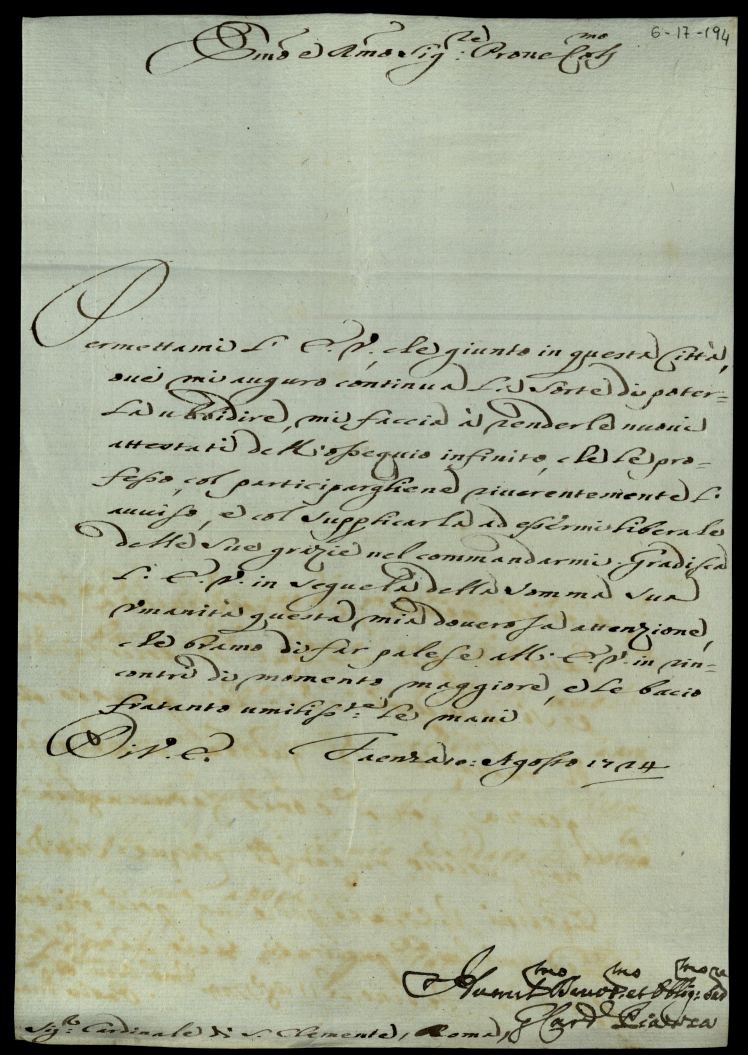 6-17-194
Emo e Rmo Sig:re Prone Colmo
Permettami l'E. V., che giunto in questa Città,
ove mi auguro continua la Sorte di poter=
La ubbidire, mi faccia à renderle nuovi
attestati dell'ossequio infinito, che le pro=
fesso, col participargliene riverentemente l'
avviso, e col supplicarla ad essermi liberale
delle sue grazie nel commandarmi. Gradisca
l'E. V. in seguela della somma sua
Umanità questa mia doverosa attenzione,
che bramo di far palese all'E. V. in rin=
contri di momento maggiore, e le bacio
fratanto umiliss:te le mani
Di V. E. Faenza 10: Agosto 1724
Humilmo Devotmo et Obblig:mo
G Card. Piazza
Sig:r Cardinale di S. Clemente, Roma,